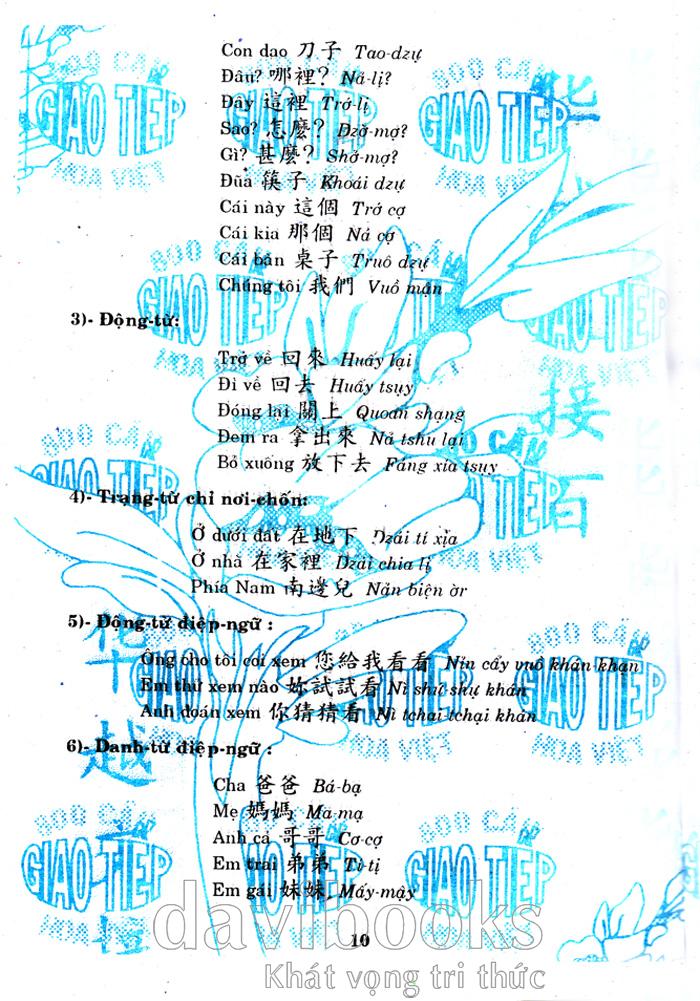 Con dao 刀子 Tao-dzự
Đâu? 哪裡? Nả-lị?
Đây 這裡 Trớ-lị
Sao? 怎麼? Dzở-mợ?
Gì? 甚麼? Shở-mợ?
Đũa 筷子 Khoái dzự
Cái này 這個 Trớ cợ
Cái kia 那個 Ná cợ
Cái bàn 桌子 Truô dzự
Chúng tôi 我們 Vuổ mận
3)- Động-từ:
Trở về 回來 Huẩy lại
Đi về 回去 Huẩy tsụy
Đóng lại 關上 Quoan shạng
Đem ra 拿出來 Nả tshu lại
Bỏ xuống 放下去 Fáng xía tsụy
4)- Trạng-từ chỉ nơi-chốn:
Ở dưới đất 在地下 Dzái tí xịa
Ở nhà 在家裡 Dzái chia lị
Phía Nam 南邊兒 Nản biện ờr
5)- Động-từ điệp-ngữ :
Ông cho tôi coi xem 您給我看看 Nỉn cẩy vuổ khán khạn
Em thử xem nào 妳試試看 Nỉ shự shự khán
Anh đoán xem 你猜猜看 Nỉ tchai tchại khán
6)- Danh-từ điệp-ngữ :
Cha 爸爸 Bá-bạ
Mẹ 媽媽 Ma-mạ
Anh cả 哥哥 Cơ-cợ
Em trai 弟弟 Tí-tị
Em gái 妹妹 Mấy-mậy
10
davibooks
Khát vọng tri thức
800 CÂU
GIAO TIẾP
HOA VIỆT
华
接
百
华
越